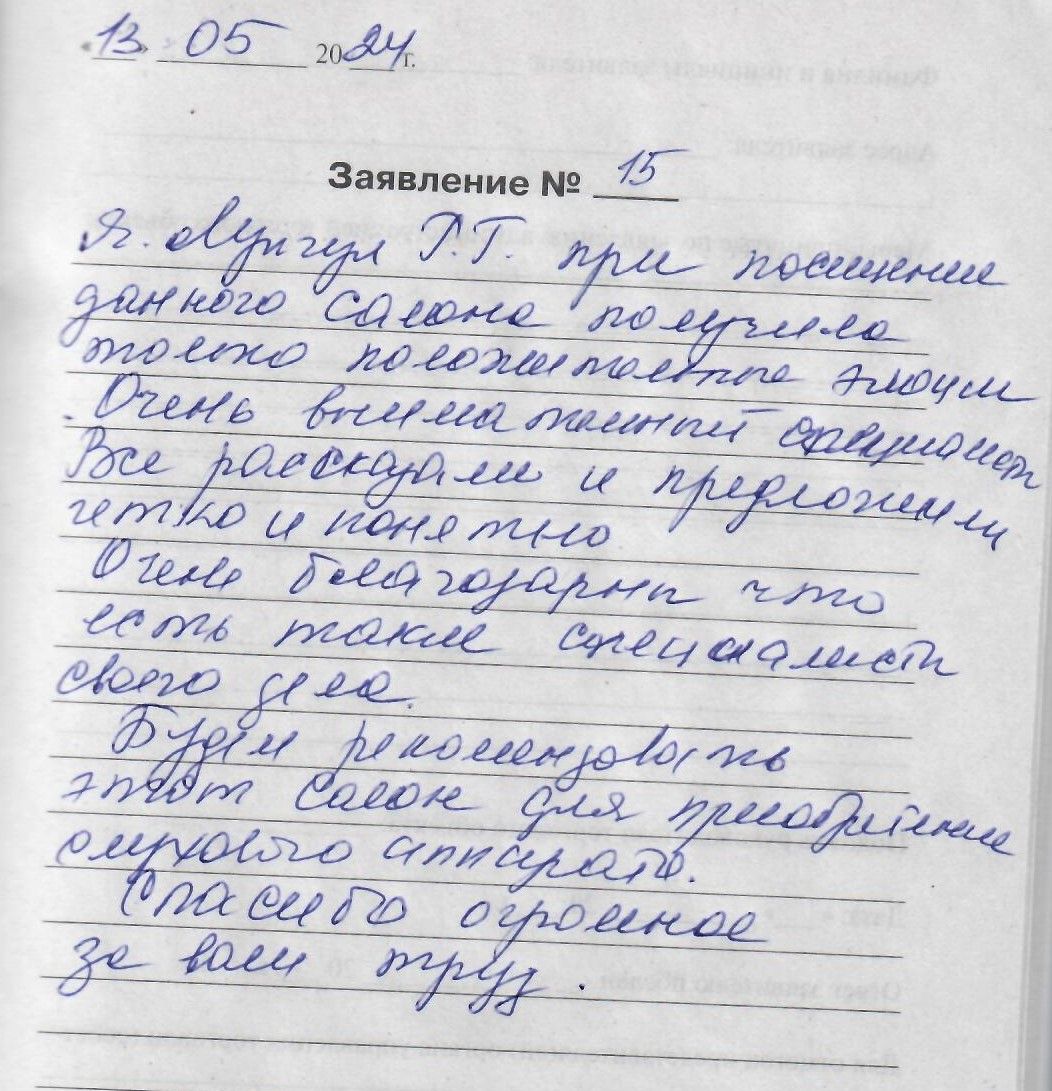 «13» 05 2024 г.
Заявление № 15
Я. Мунчул Р.Г. при посищении
данного салона получила
только положительные эмоции
. Очень внимательный специалист
Все рассказали и предложили
четко и понятно
Очень благодарны что
есть такие специалисты
своего дела.
Будем рекомендовать
этот салон для приобритение
слухового аппарата.
Спасибо огромное
за ваш труд.